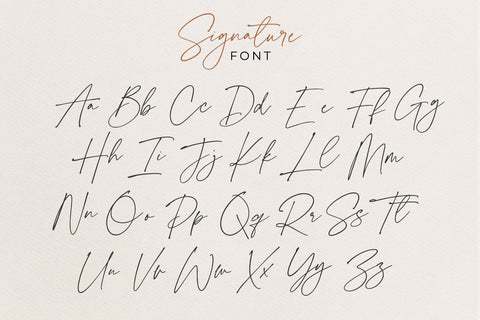 Signature
FONT
Aa Bb Cc Dd Ee Ff Gg
Hh Ii Jj Kk Ll Mm
Nn Oo Pp Qq Rr Ss Tt
Uu Vv Ww Xx Yy Zz